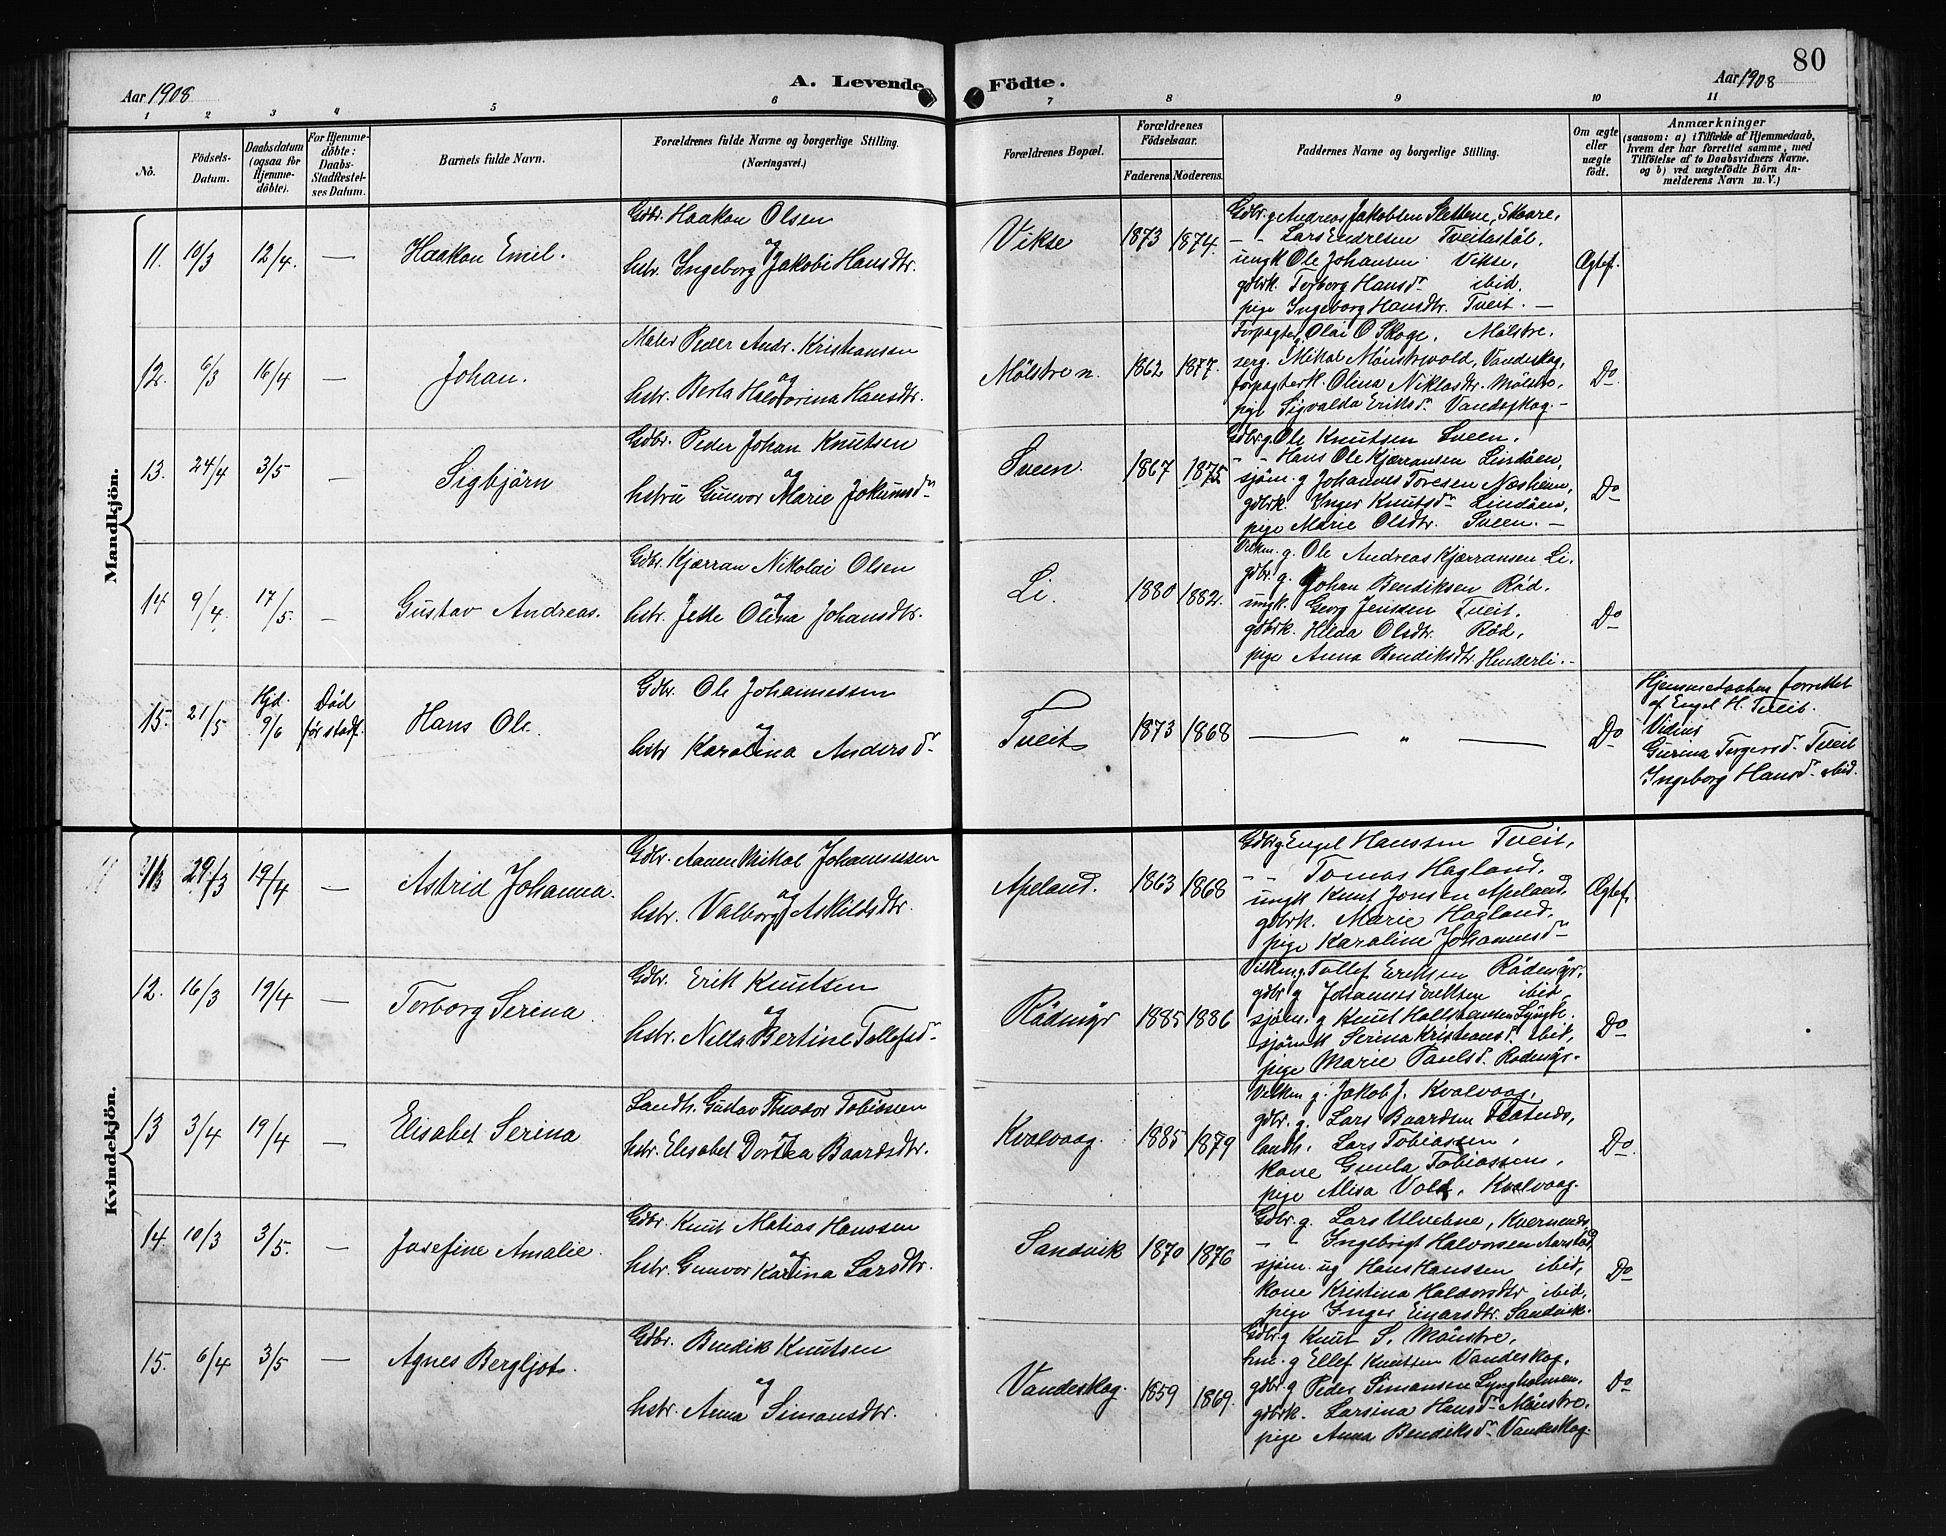 80
Aar 1908
A. Levende
Födte.
Aar 1908
1 2 3 4 5 6 7 8 9 10 11
No.
Födsels-
Datum.
Daabsdatum
(ogsaa for
Hjemme-
döbte).
For Hjemme-
döbte:
Daabs-
Stadfæstel-
ses Datum.
Barnets fulde Navn.
Forældrenes fulde Navne og borgerlige Stilling.
(Næringsvei.)
Forældrenes Bopæl.
Forældrenes
Födselsaar.
Faderens. Moderens.
Faddernes Navne og borgerlige Stilling.
Om ægte
eller
uægte
födt.
Anmærkninger
(saasom: a) i Tilfælde af Hjemmedaab,
hvem der har forrettet samme, med
Tilföielse af to Daabsvidners Navne.
og b) ved uægtefödte Börn An-
melderens Navn m. V.)
Mandkjön.
11. 10/3 12/4. —
Haakon Emil.
Gdbr. Haakon Olsen
og
hstr. Ingeborg Jakobi Hansdtr.
Vikse
1873 1874.
Gdbr. g Andreas Jakobsen Slettene, Skaare,
- - Lars Endresen Tveitastöl.
ungk Ole Johansen Vikse,
gdbrk. Torborg Hansdr ibid.
pige Ingeborg Hansdtr. Tveit. —
Ægtef.
12. 6/3 16/4 —
Johan.
Maler Peder Andr. Kristiansen
og
hstr. Berta Halvorina Hansdtr.
Mölstre n.
1862 1877.
Forpagter Olai O Skoge, Mölstre.
serg. Mikal Mönstrevold, Vandeskog,
forpagterk. Olina Niklasdtr. Mölstre,
pige Sigvalda Eriksdr Vandeskog. —
Do.
13. 24/4 3/5 —
Sigbjörn
Gdbr. Peder Johan Knutsen
og
hstru Gunvor Marie Jokumsdr
Sveen.
1867 1875
Gdbr. g. Ole Knutsen Sveen.
- - Hans Ole Kjærransen Lindöen,
sjöm. g Johannes Toresen Næsheim,
gdbrk. Inger Knutsdr Lindöen,
pige Marie Olsdtr. Sveen. —
Do
14 9/4. 17/5. —
Gustav Andreas.
Gdbr. Kjærran Nikolai Olsen
og
hstr. Jette Olina Johansdtr.
Li.
1880 1882.
Vilkm. g. Ole Andreas Kjærransen Li.
gdbr. g. Johan Bendiksen Röd.
ungk. Georg Jenssen Tveit.
gdbrk. Hilda Olsdtr. Röd,
pige Anna Bendiksdtr Henderli. —
Do
15. 21/5 Hjd. 9/6 Död för stadf.
Hans Ole.
Gdbr. Ole Johannessen
og
hstr Karolina Andersdr
Tveit
1873 1868
— " —
Do
Hjemmedaaben forrettet
af Engel H. Tveit.
Vidner
Gurina Torgersdr Tveit
Ingeborg Hansdr ibid.
Kvindekjön.
29/3 19/4 —
Astrid Johanna.
Gdbr. Aanen Mikal Johannessen
og
hstr. Valborg Askildsdtr.
Apeland.
1863 1868
Gdbr g Engel Hanssen Tveit,
- - Tomas Hagland.
ungk Knut Jonsen Apeland,
gdbrk. Marie Hagland.
pige Karoline Johannesdr
Ægtef.
12. 16/3 19/4 —
Torborg Serina.
Gdbr. Erik Knutsen
og
hstr. Nilla Bertine Tollefsdr
Rödnigr
1885 1886
Vilkm. g. Tollef Eriksen
gdbr g Johannes Eriksen ibid,
sjöm. g Knut
sjömk Serina Kristiansdr ibid,
pige Marie Paulsdr
Do
13 3/4 19/4 —
Elisabet Serina
Landh. Gustav Theodor Tobiassen
og
hstr. Elisabet Dortea Baardsdtr.
Kvalvaag.
1885 1879
Vilkm g. Jakob J. Kvalvaag,
gdbr. g. Lars Baardsen
landh. Lars Tobiassen,
kone Gunla Tobiassen,
pige Alisa Vold, Kvalvaag
Do.
14. 10/3 3/5. —
Josefine Amalie.
Gdbr. Knut Matias Hanssen
og
hstr. Gunvor Karina Larsdtr.
Sandvik
1870 1876
Gdbr. g. Lars Ulvehne, Kvernends
- - Ingebrigt Halvorsen Aarstad,
sjöm. ug Hans Hanssen ibid,
kone Kristina Haldorsdtr ibid,
pige Inger Einarsdtr Sandvik.
Do
15. 6/4 3/5 —
Agnes Bergljot.
Gdbr. Bendik Knutsen
og
hstr. Anna Simonsdtr.
Vandeskog.
1859 1869.
Gdbr. g Knut S. Mönstre,
hm. g Ellef Knutsen Vandeskog.
gdbr. g Peder Simonsen Lyngholmen,
gdbrk. Larsina Hansdr Mönstre,
pige Anna Bendiksdr Vandeskog.
Do